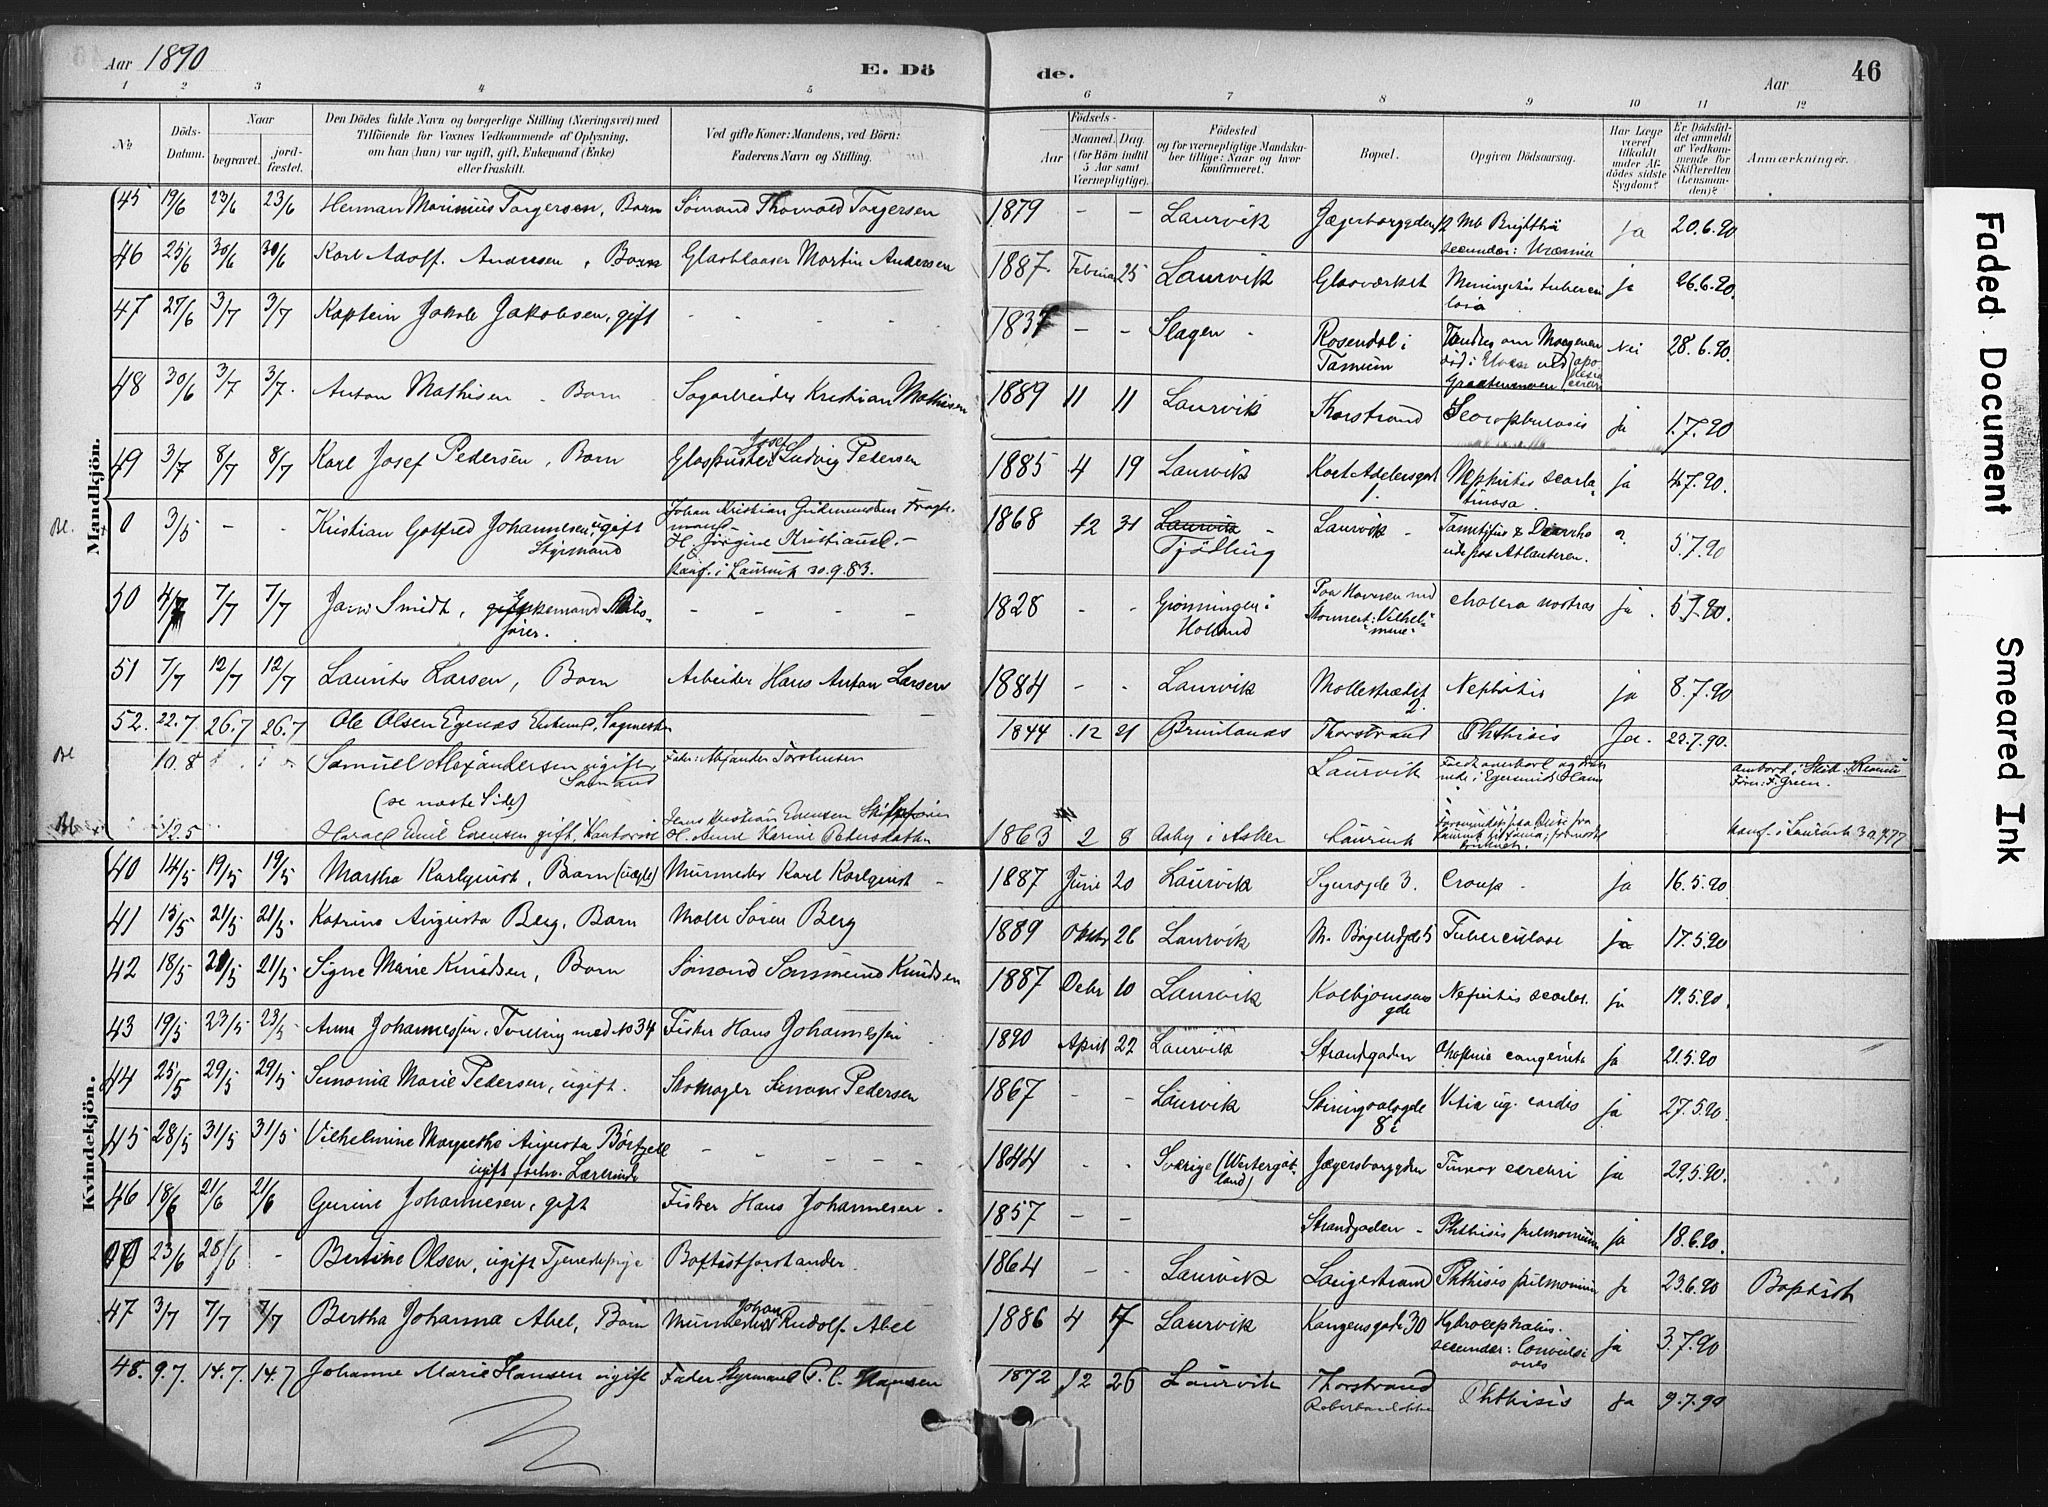 Aar 1890
E. Döde.
Aar
46
1 2 3 4 5 6 7 8 9 10 11 12
No
Döds-Datum.
Naar
begravet.
jordfæstet.
Den Dödes fulde Navn og borgerlige Stilling (Næringsvei) med
Tilföiende for Voxnes Vedkommende af Oplysning,
om han (hun) var ugift, gift, Enkemand (Enke)
eller fraskilt.
Ved gifte Koner: Mandens, ved Börn:
Faderens Navn og Stilling.
Födsels-
Aar
Maaned. Dag.
(for Börn indtil
5 Aar samt
Værnepligtige).
Födested
og for værnepligtige Mandskaber tillige: Naar og hvor
konfirmeret.
Bopæl.
Opgiven Dödsaarsag.
Har Læge
været
tilkaldt
under Afdödes sidste
Sygdom?
Er Dödsfaldet anmeldt
af Vedkommende for
Skifteretten
(Lensmanden)?
Anmærkninger.
Mandkjön.
45 19/6 23/6 23/6 Herman Marinius Torgersen, Barn Sömand Thorvald Torgersen 1879 - - Laurvik Mb Brightii secundær: Uræmia Ja 20.6.90
46 25/6 30/6 30/6 Karl Adolf Andersen, Barn Glasblaaser Martin Andersen 1887 Februar 25 Laurvik Glasværket Meningitis tuberculosa ja 26.6.90.
47 27/6 3/7 3/7 Kaptein Jakob Jakobsen, gift - - - - 1837 - - Slagen Rosendal i Tamum Nei 28.6.90.
48 30/6 3/7 3/7. Anton Mathisen Barn Sagarbeider Kristian Mathisen 1889 11 11 Laurvik Thorstrand Scrophulosis ja 1.7.90
49 3/7 8/7 8/7 Karl Josef Pedersen, Barn Glaspuster Josef Ludvig Pedersen 1885 4 19 Laurvik Kort Adelersgd 1. Nephritis scarlatinosa. ja 4.7.90.
Bl. 0 3/5 - - Kristian Gotfred Johannesen, ugift Styrmand
H. Jörgine Kristiansd. -
Konf. i Laurvik 30.9.83.
1868 12 31 Laurvik Tjödling Laurvik ? 5.7.90
50 4/7 7/7 7/7 Jan Smidt, gift Enkemand Skibsförer. - - - - 1828 - - Grønningen i Holland Paa Havnen ved Skonnert: Vilhelmine cholera nostras ja. 5.7.90.
51 7/7 12/7 12/7 Laurits Larsen, Barn Arbeider Hans Anton Larsen 1884 - - Laurvik Mollestrædet 2. Nephritis ja 8.7.90
52. 22.7 26.7 26.7 Ole Olsen Egenæs Enkemd, Sagmester 1844 12 21 Brunlanes Thorstrand Phthisis Ja. 22.7.90.
Bl 10.8 Samuel Alexandersen ugift Sømand
(se næste Side)
Fader: Alexander Torstensen Laurvik
Bl 12.5 Harald Emil Evensen gift, Kontorist
Hans Kristian Evensen Skibsfører
H. Anne Karine Pedersdatter 1863 2 8 Asby i Asker Laurvik Konf. i Laurvik 30.9.77
Kvindekjön.
40 14/5 19/5 19/5 Martha Karlquist, Barn (uægte) Murmester Karl Karlquist 1887 Juni 20 Laurvik 3. Croup. ja 16.5.90.
41 15/5 21/5 21/5 Katrine Augusta Berg, Barn Maler Sören Berg 1889 Oktbr 26 Laurvik N. Bögelidgde 5 Tuberculose ja 17.5.90
42 18/5 21/5 21/5 Signe Marie Knudsen, Barn Sömand Sammund Knudsen 1887 Decbr 10 Laurvik Kolbjörnsens gde Nefritis scarlat. ja 19.5.90.
43 19/5 23/5 23/5 Anna Johannessen. Tvilling med No 34 Fisker Hans Johannessen 1890 April 22 Laurvik Strandgaden Atrofia congenita ja 21.5.90
44 25/5 29/5 29/5 Simonia Marie Pedersen, ugift. Skomager Simon Pedersen 1867 - - Laurvik Skiringsalsgde 8 Vitia org. cordis ja 27.5.90
45 28/5 31/5 31/5 Vilhelmine Margrethe Augusta Börtzell
ugift forhv. Lærerinde - - - - 1844 - - Sverige (Vestergötland) Jægersborggden Tumor cerebri ja 29.5.90.
46 18/6 21/6 21/6 Gurine Johannesen, gift Fisker Hans Johannesen. 1857 - - Strandgaden - Phthisis pulmonum ja 18.6.90.
00 23/6 28/6 - Bertine Olsen, ugift Tjenestepige Baptistforstander. 1864 - - Laurvik Langestrand Phthisis pulmonum ja 23.6.90 Baptist
47 3/7 7/7 7/7 Bertha Johanna Abel, Barn Murmester Johan Rudolf Abel 1886 4 7 Laurvik Kongensgade 30 Hydrocephalus. secundær: Convulsiones ja 3.7.90
48. 9.7. 14.7. 14.7 Johanne Marie Hansen ugift Fader Styrmand P. C. Hansen 1872 12 26 Laurvik Thorstrand Phthisis Ja 9.7.90
Faded Document
Smeared Ink